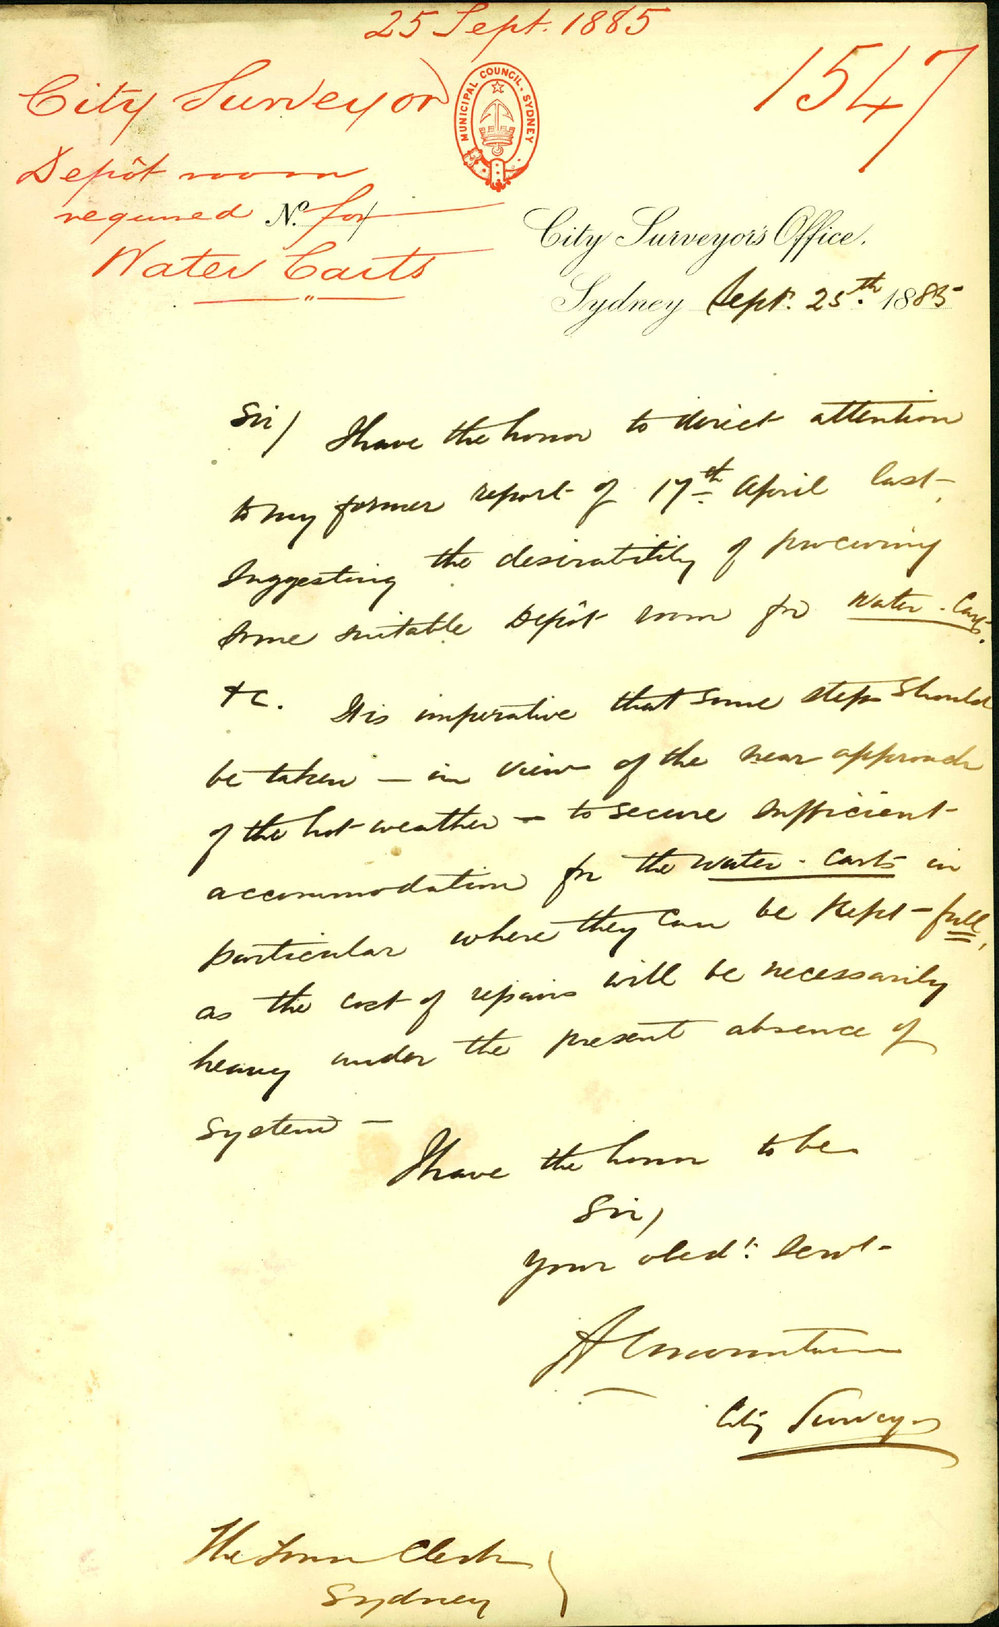 25 Sept. 1885
1547
City Surveyor
MUNICIPAL COUNCIL. SYDNEY
Depôt room
required No. for
Water Carts
City Surveyor's Office.
Sydney Sept. 25th. 1885
Sir) I have the honor to direct attention
to my former report of 17th April last,
suggesting the desirability of procuring
some suitable Depôt room for Water-Carts.
&c. It is imperative that some step should
be taken — in view of the near approach
of the hot weather — to secure sufficient
accommodation for the water-carts in
particular where they can be kept full,
as the cost of repairs will be necessarily
heavy under the present absence of
system —
I have the honor to be
Sir,
Your obedt. Servt
City Surveyor
The Town Clerk
Sydney